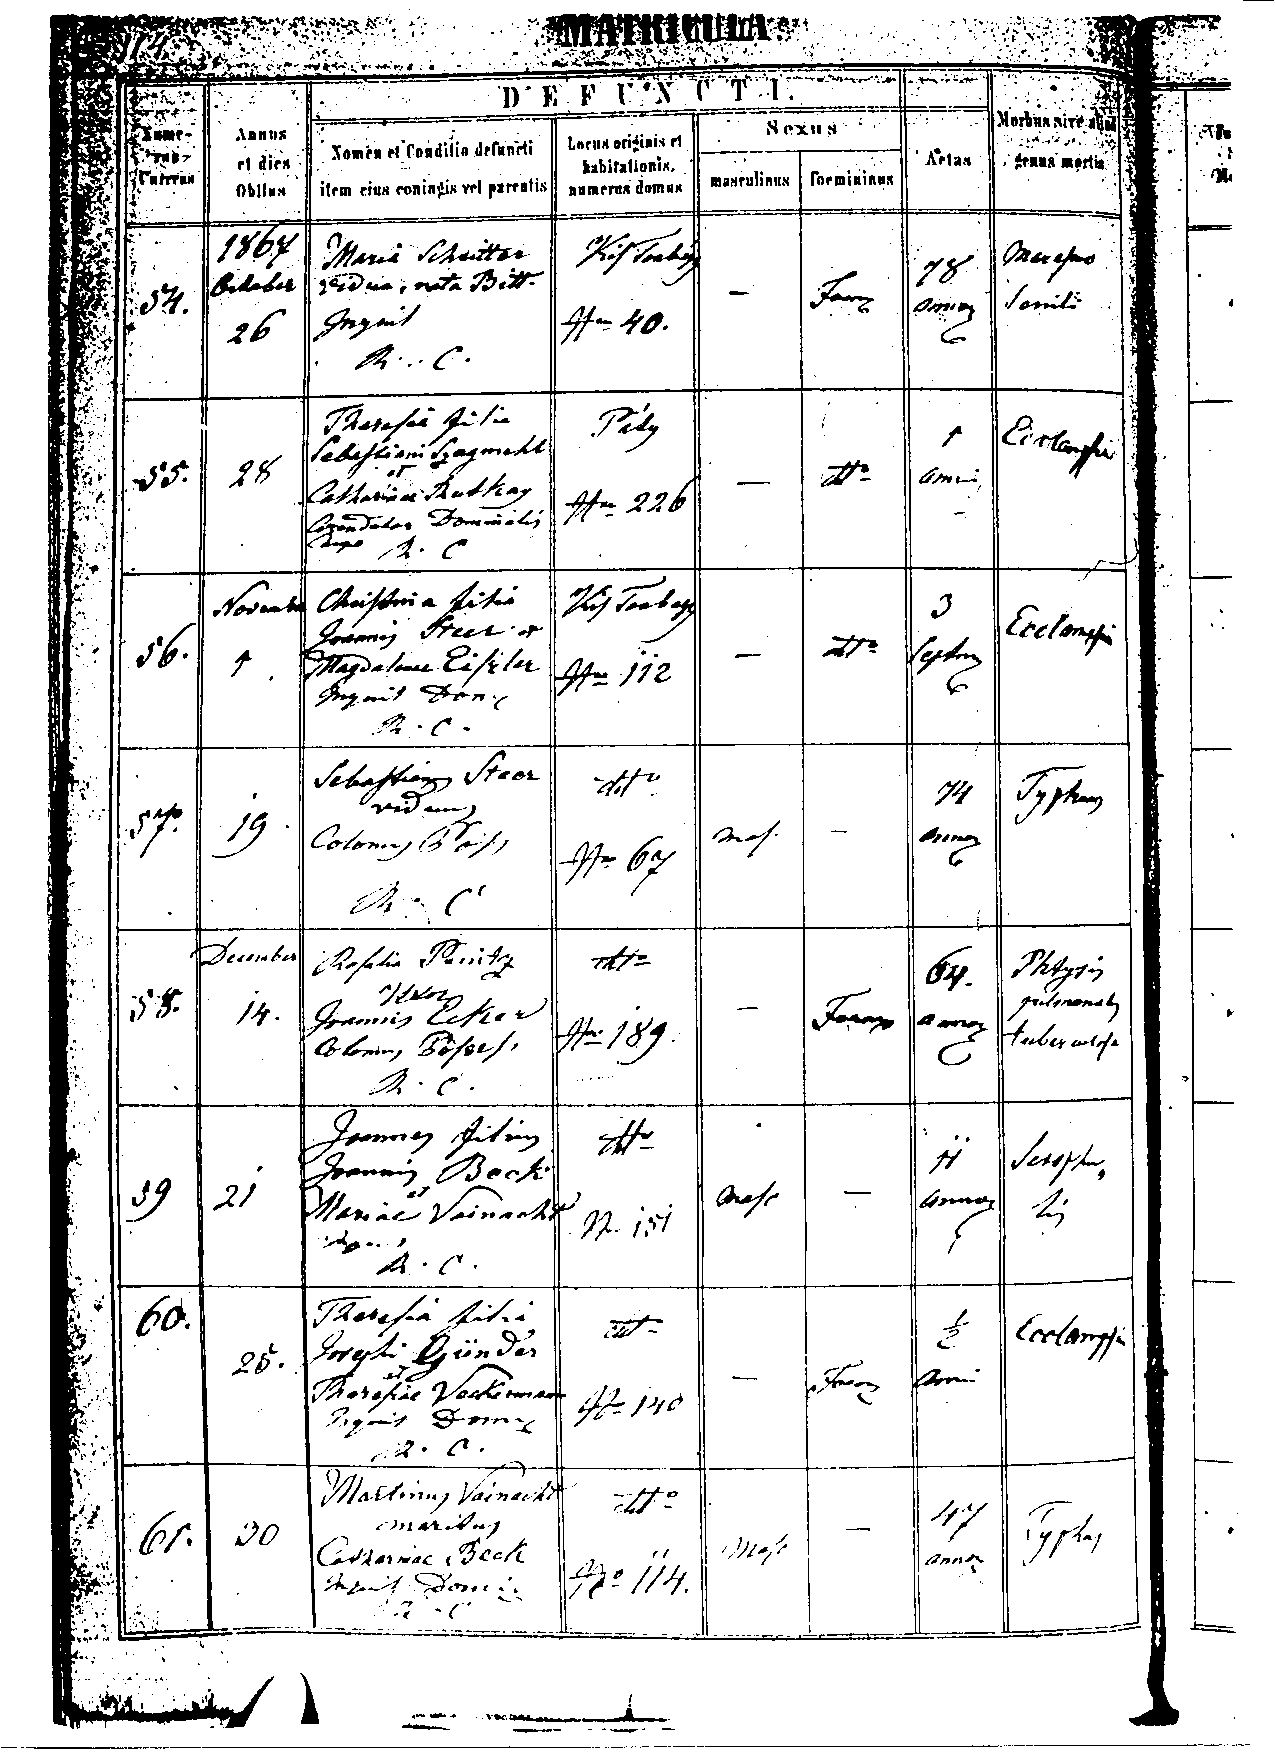 114.
MATRICULA
DEFUNCTI.
Nume-
rus
Currens
Annus
et dies
Obitus
Nomen et Conditio defuncti
item eius coniugis vel parentis
Locus originis et
habitationis,
numerus domus
Sexus
masculinus
foemininus
Aetas
Morbus sive aliud
genus mortis
54.
1867
October
26
Maria
vidua, nata Bitt
Inquil
R. C.
Kis
Nro 40.
—
Foem
78
annor
Senilis
55.
28
Theresia filia
Sebastiani
et
Catharinae
Dominalis
R. C
Páty
Nro 226
—
dto
1
anni
Eclampsia
56.
November
1
Christina filia
Joannis Steer et
Magdalenae Eiszler
Inquil Dom
R. C.
Kis
Nro 112
—
dto
3
Septim
Eclampsia
57.
19
Sebastianus Steer
viduus
Colonus
R. C
dto
Nro 67
mas.
—
74
annor
Typhus
58.
December
14.
Rosalia
Uxor
Joannis Ecker
Colonus
R. C.
dto
Nro 189.
—
Foem
64.
annor
Phtysis
pulmonalis
tuberculosa
59
21
Joannes filius
Joannis Beck
et
Mariae Vainacht
R. C.
dto
N. 151
Masc
—
11
annor
60.
25.
Theresia filia
Josephi Günder
et
Theresiae Vockermann
Inquil Dom
R. C.
dto
Nro 140
—
Foem
½
anni
Ecclampsia
61.
30
Martinus Vainacht
maritus
Catharinae Beck
Inquil Domi
R. C
dto
Nro 114.
Masc
—
47
annor
Typhus